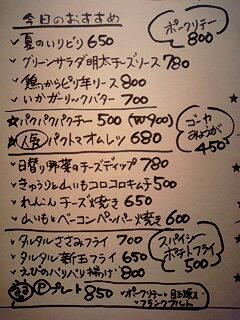 今日のおすすめ
ポークソテー
800
夏のいりどり 650
グリーンサラダ明太チーズソース 780
鶏つからピリ辛ソース 800
いかガーリックバター 700
★パクパクパクチー 500 (W900)
★人気 パクトマオムレツ 680
ゴーヤ
みょうが
450
日替り野菜のチーズディップ 780
きゅうりと山いもコロコロキムチ 500
れんこんチーズ焼き 650
山いもとベーコンペーパー焼き 600
タルタルささみフライ 700
タルタル新玉フライ 650
えびのパリパリ揚げ 800
スパイシー
ポテトフライ
500
Ⓟプレート 850
ポークソテー
目玉焼き
フランクフルト